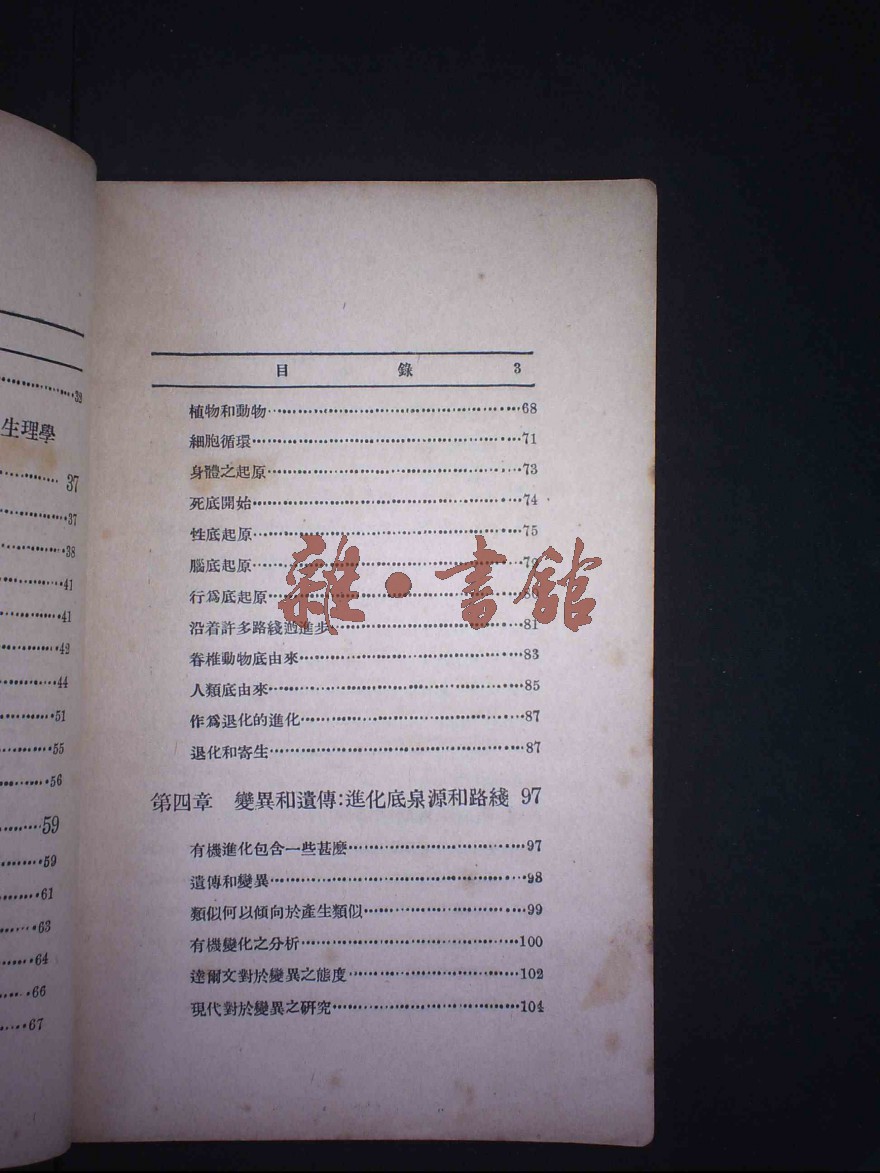 32
生理學
37
37
38
41
41
42
44
51
55
56
59
59
61
63
64
66
67
目 錄 3
植物和動物……68
細胞循環……71
身體之起原……73
死底開始……74
性底起原……75
腦底起原……
行爲底起原……80
沿着許多路綫的進步……81
脊椎動物底由來……83
人類底由來……85
作爲退化的進化……87
退化和寄生……87
第四章 變異和遺傳:進化底泉源和路綫 97
有機進化包含一些甚麼……97
遺傳和變異……98
類似何以傾向於產生類似……99
有機變化之分析……100
達爾文對於變異之態度……102
現代對於變異之研究……104
雜·書館